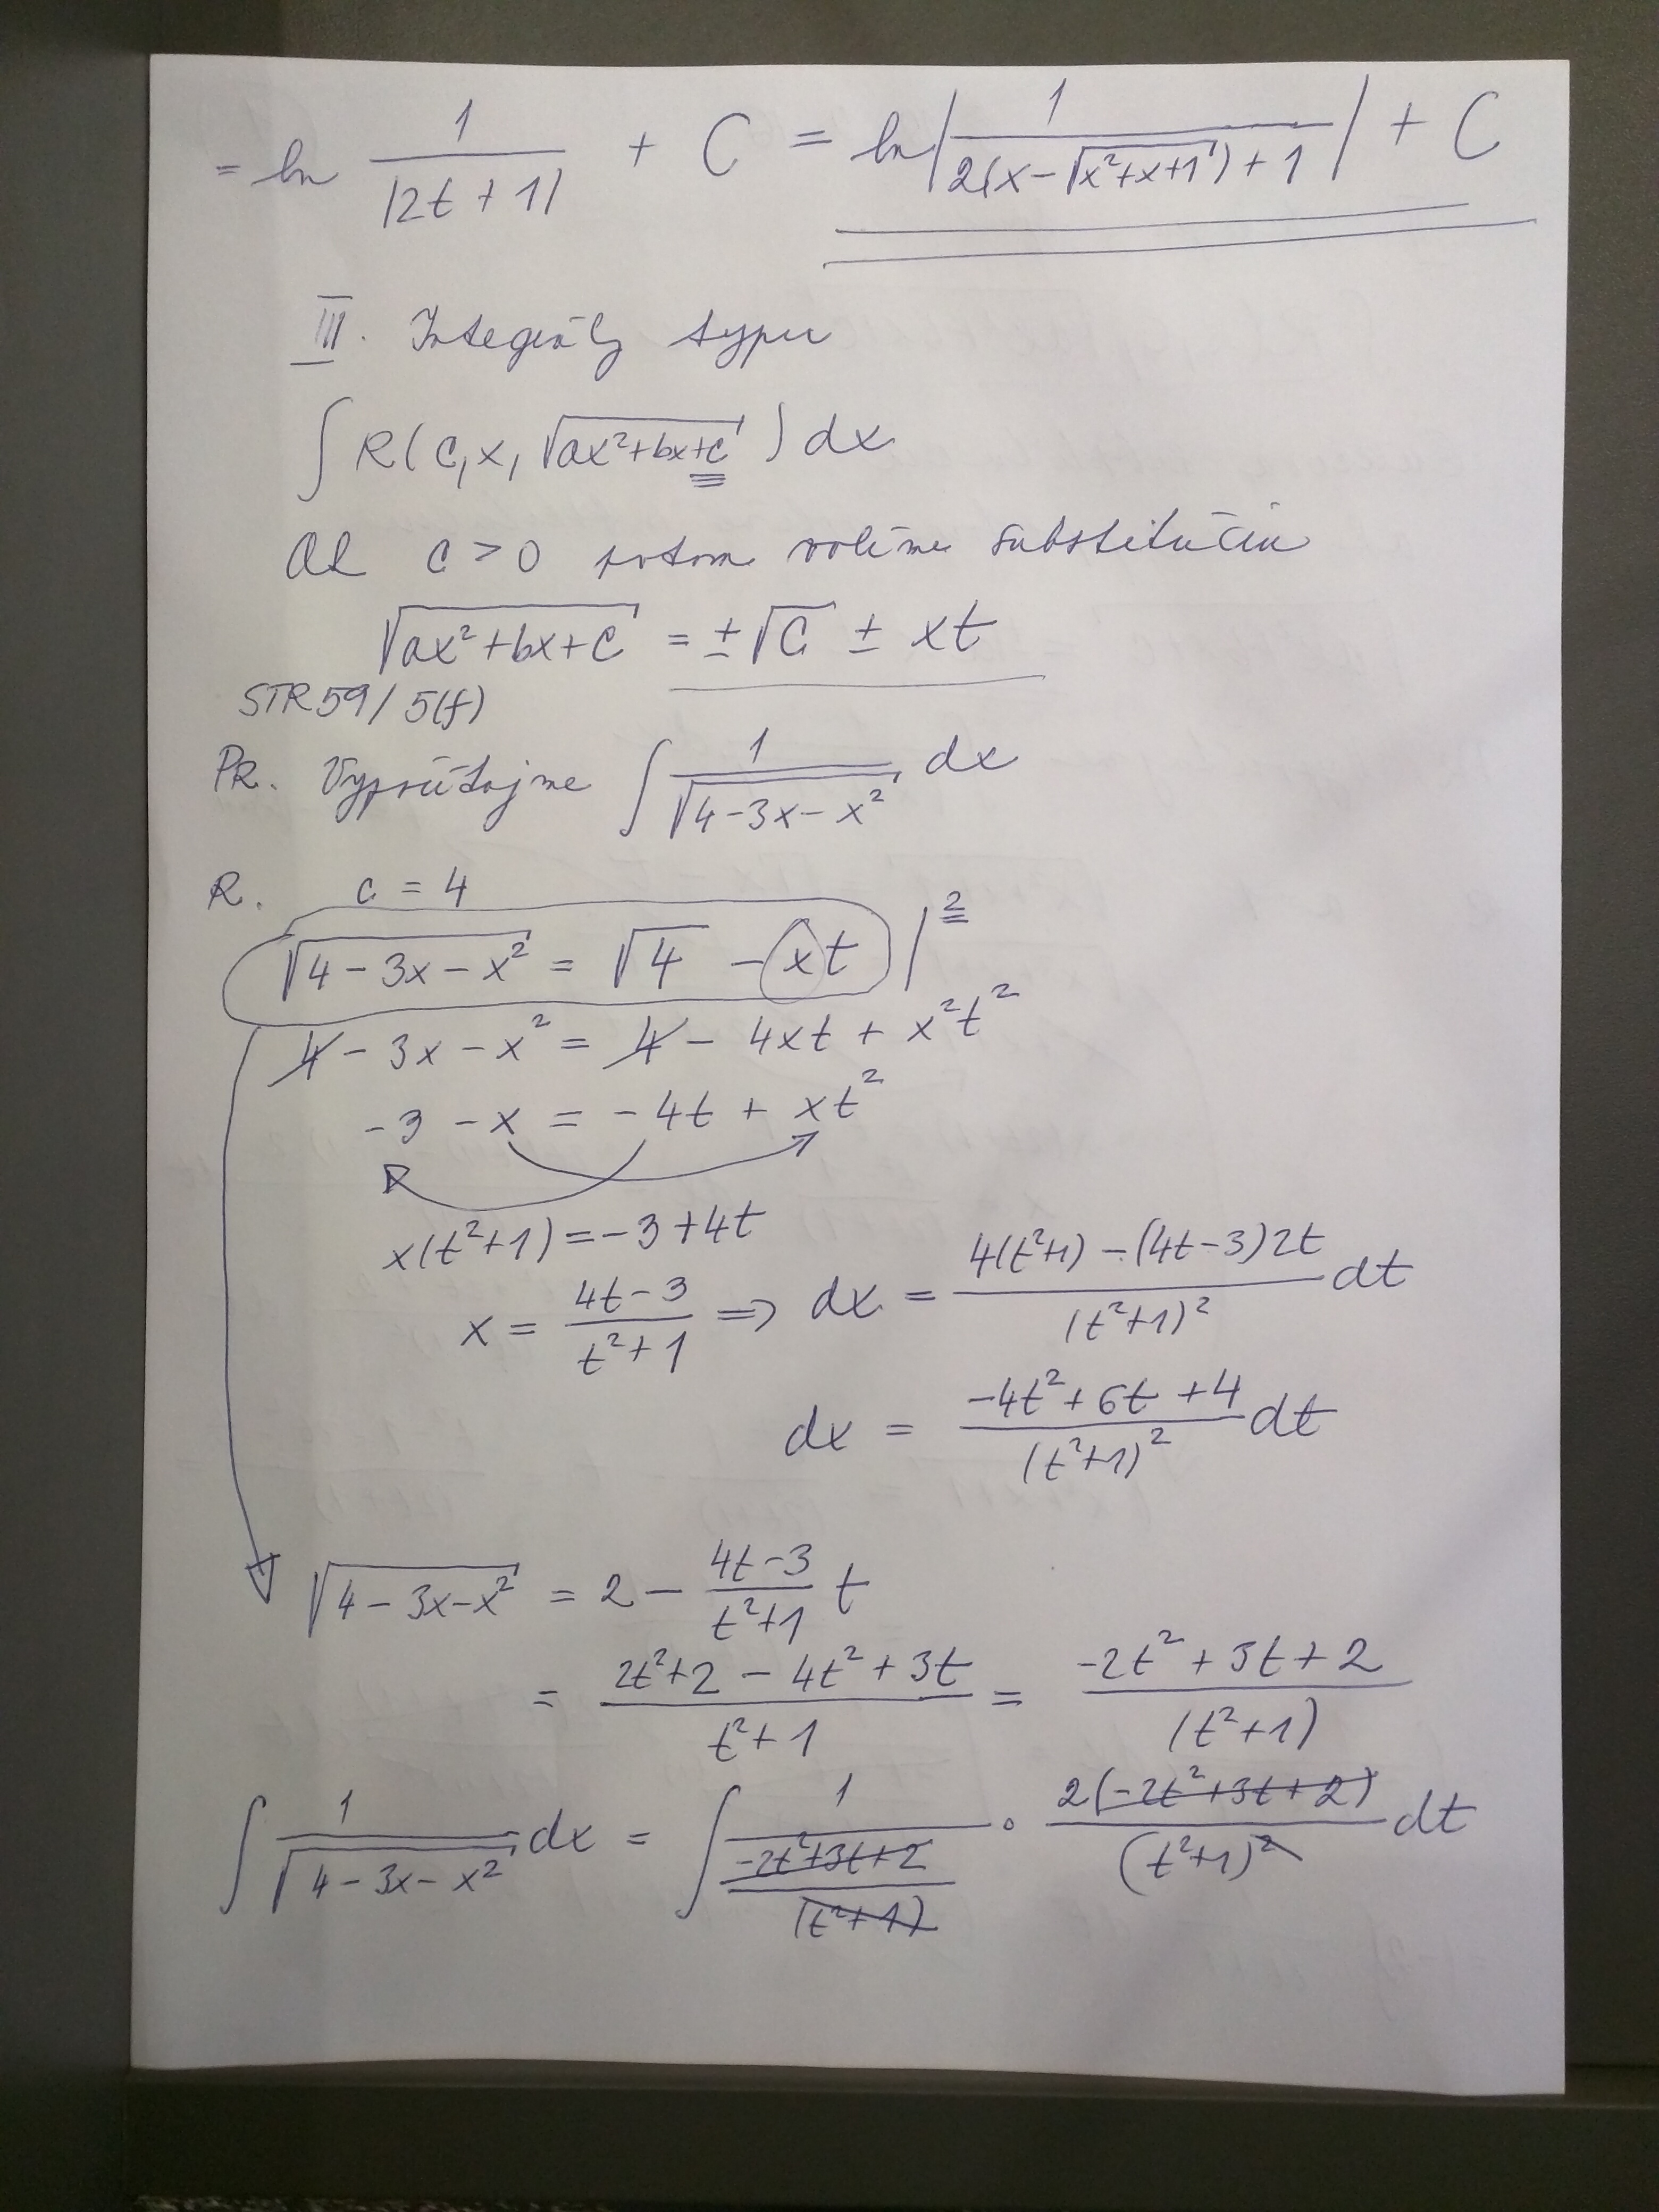 = ln 1/|2t + 1| + C = ln|1/(2(x-√(x²+x+1))+1)| + C
III. Integrály typu
∫ R(c, x, √(ax²+bx+c)) dx
Ak c > 0 potom volíme substitúciu
√(ax²+bx+c) = ±√c ± xt
STR 59/ 5(f)
PR. Vypočítajme ∫ 1/√(4-3x-x²) dx
R. c = 4
√(4-3x-x²) = √4 - xt /²
4 - 3x - x² = 4 - 4xt + x²t²
-3 - x = -4t + xt²
x(t²+1) = -3+4t
x = (4t-3)/(t²+1) ⇒ dx = (4(t²+1) - (4t-3)2t)/(t²+1)² dt
dx = (-4t²+6t+4)/(t²+1)² dt
√(4-3x-x²) = 2 - (4t-3)/(t²+1) t
= (2t²+2 - 4t²+3t)/(t²+1) = (-2t²+3t+2)/(t²+1)
∫ 1/√(4-3x-x²) dx = ∫ 1/((-2t²+3t+2)/(t²+1)) · 2(-2t²+3t+2)/(t²+1)² dt